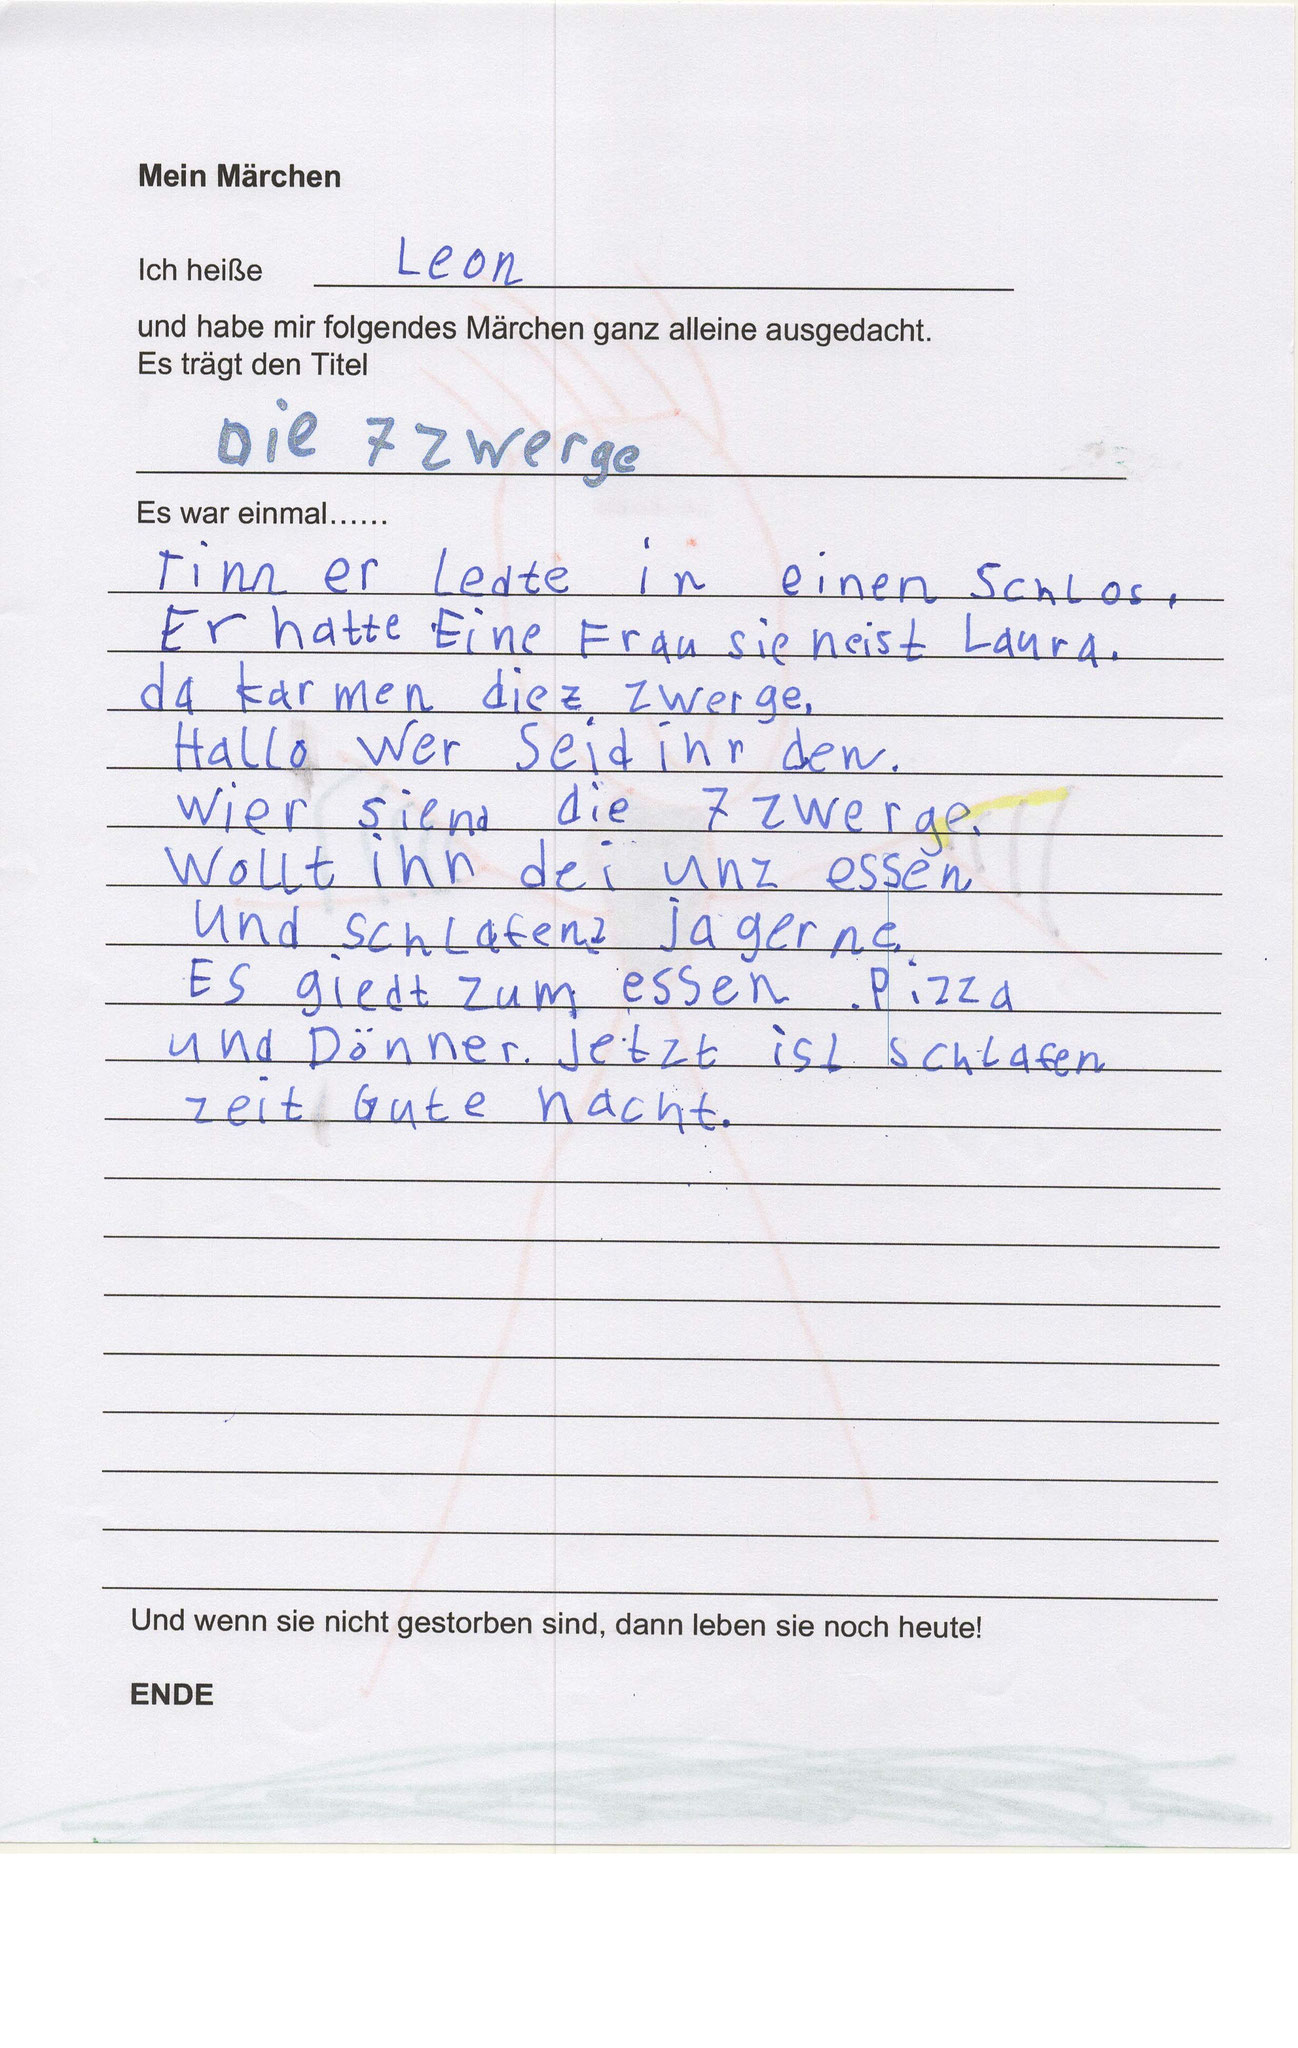 Mein Märchen
Ich heiße Leon
und habe mir folgendes Märchen ganz alleine ausgedacht.
Es trägt den Titel
Die 7 zwerge
Es war einmal......
Tinn er Lebte in einen Schlos.
Er hatte Eine Frau sie heist Laura.
da karmen die 7 zwerge.
Hallo wer Seid ihr den.
wier siend die 7 zwerge.
Wollt ihr dei unz essen
und schlafen? ja gerne.
ES giebt zum essen. Pizza
und Dönner. Jetzt ist schlafen
zeit Gute nacht.
Und wenn sie nicht gestorben sind, dann leben sie noch heute!
ENDE